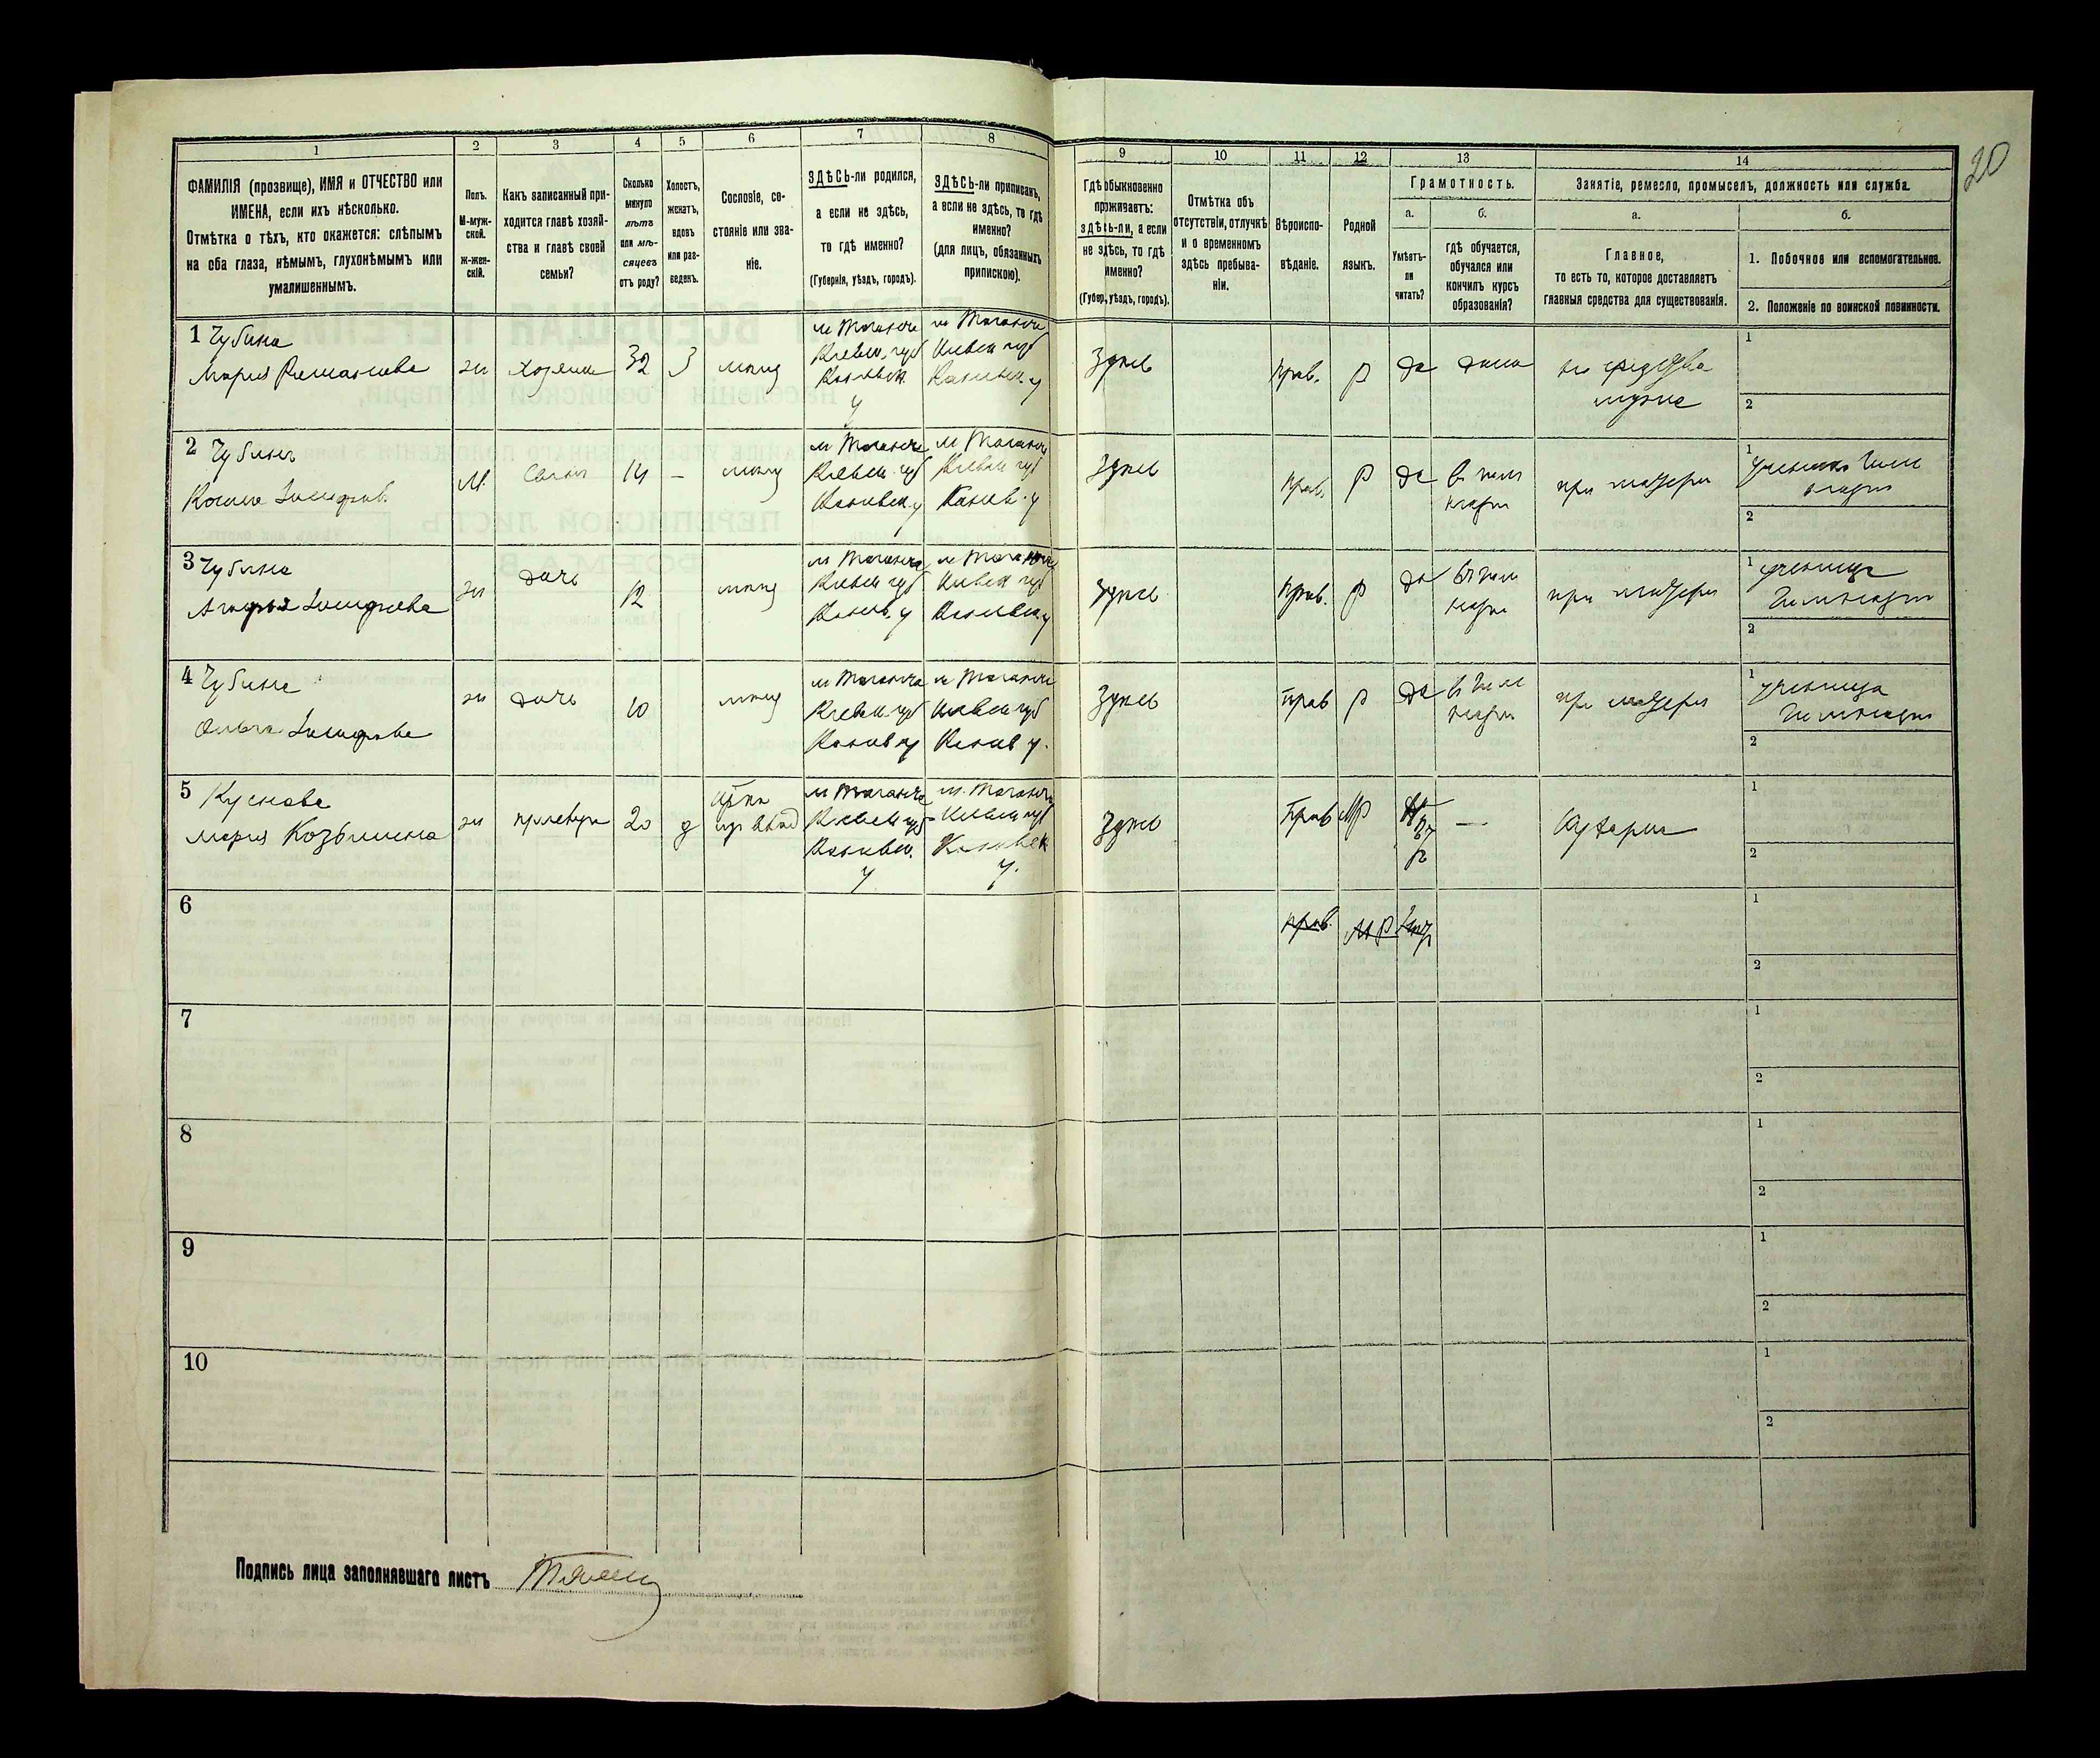 20
1 2 3 4 5 6 7 8 9 10 11 12 13 14
ФАМИЛІЯ (прозвище), ИМЯ и ОТЧЕСТВО или
ИМЕНА, если ихъ нѣсколько.
Отмѣтка о тѣхъ, кто окажется: слѣпымъ
на оба глаза, нѣмымъ, глухонѣмымъ или
умалишеннымъ.
Полъ.
М-муж-
ской.
Ж-жен-
скій.
Какъ записанный при-
ходится главѣ хозяй-
ства и главѣ своей
семьи?
Сколько
минуло
лѣтъ
или мѣ-
сяцевъ
отъ роду?
Холостъ,
женатъ,
вдовъ
или раз-
веденъ.
Сословіе, со-
стояніе или зва-
ніе.
ЗДѢСЬ-ли родился,
а если не здѣсь,
то гдѣ именно?
(Губернія, уѣздъ, городъ).
ЗДѢСЬ-ли приписанъ,
а если не здѣсь, то гдѣ
именно?
(для лицъ, обязанныхъ
припискою).
Гдѣ обыкновенно
проживаетъ:
здѣсь-ли, а если
не здѣсь, то гдѣ
именно?
(Губер., уѣздъ, городъ).
Отмѣтка объ
отсутствіи, отлучкѣ
и о временномъ
здѣсь пребыва-
ніи.
Вѣроиспо-
вѣданіе.
Родной
языкъ.
Грамотность.
а.
Умѣетъ-
ли
читать?
б.
гдѣ обучается,
обучался или
кончилъ курсъ
образованія?
Занятіе, ремесло, промыселъ, должность или служба.
а.
Главное,
то есть то, которое доставляетъ
главныя средства для существованія.
б.
1. Побочное или вспомогательное.
2. Положеніе по воинской повинности.
1 Чубина
Марія Романова
хозяйка
32
З
м Таганча
Кіевск. губ
Каневск.
у
м Таганча
Кіевск губ
Каневск. у
Здѣсь
Прав.
Р
да
дома
на средства
мужа
1
2
2 Чубинъ
М.
Сынъ
14
-
м Таганча
Кіевск. губ
Каневск. у
м Таганча
Кіевск губ
Канев. у
Здѣсь
Прав.
Р
да
при матери
1
2
3 Чубина
дочь
12
м Таганча
Кіевск губ
Канев. у
м Таганча
Кіевск губ
Каневск. у
Здѣсь
Прав.
Р
да
при матери
1 ученица
Гимназіи
2
4 Чубина
Ольга
дочь
10
м Таганча
Кіевск. губ
Канев у
м Таганча
Кіевск губ
Канев у.
Здѣсь
Прав
Р
да
при матери
1 ученица
Гимназіи
2
5
Марія Козьмина
20
д
м Таганча
Кіевск губ
Каневск.
у
м. Таганча
Кіевск губ
Каневск
у.
Здѣсь
Прав
МР
—
Кухарка
1
2
6
прав.
МР
1
2
7
1
2
8
1
2
9
1
2
10
1
2
Подпись лица заполнявшаго листъ